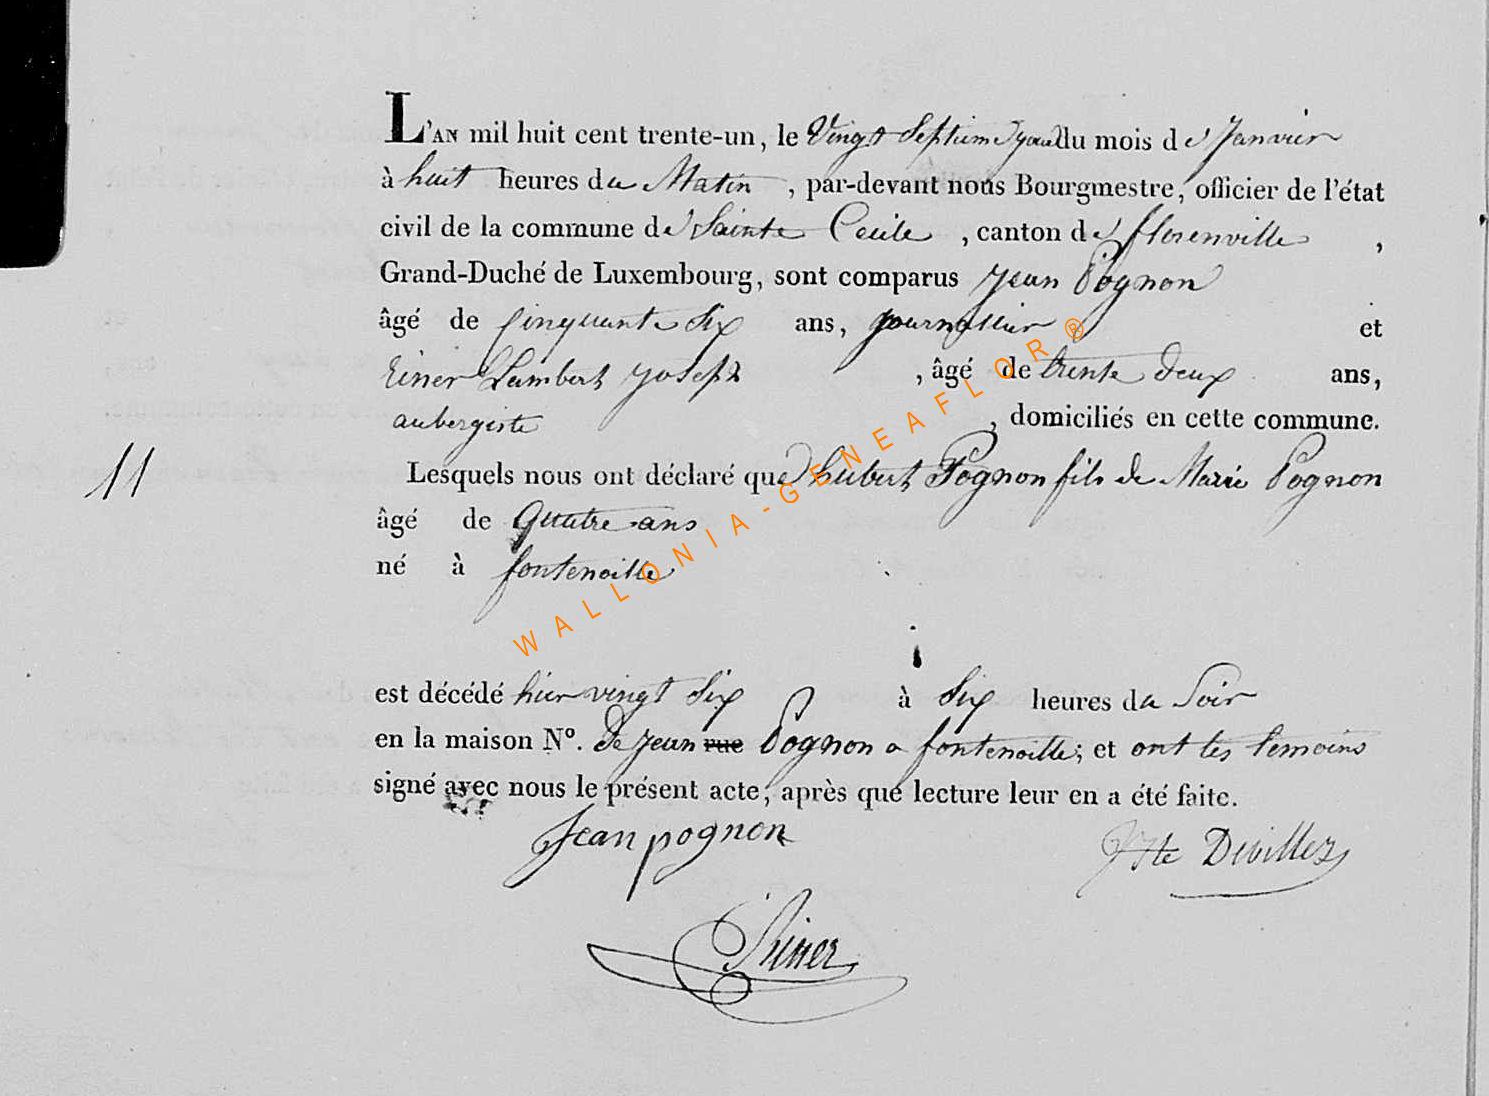 L'AN mil huit cent trente-un, le Vingt Septieme jour du mois de Janvier
à huit heures du Matin , par-devant nous Bourgmestre, officier de l'état
civil de la commune de Sainte Cecile , canton de florenville ,
Grand-Duché de Luxembourg, sont comparus Jean Pognon
âgé de Cinquante Six ans, journallier et
Lambert Joseph , âgé de trente deux ans,
aubergiste , domiciliés en cette commune.
11
Lesquels nous ont déclaré que hubert Pognon fils de Marie Pognon
âgé de quatre ans
né à fontenoille
est décédé hier vingt Six à Six heures du Soir
en la maison N°. de jean rue Pognon a fontenoille; et ont les temoins
signé avec nous le présent acte, après que lecture leur en a été faite.
Jean pognon
Devillez
WALLONIA-GENEAFLOR®